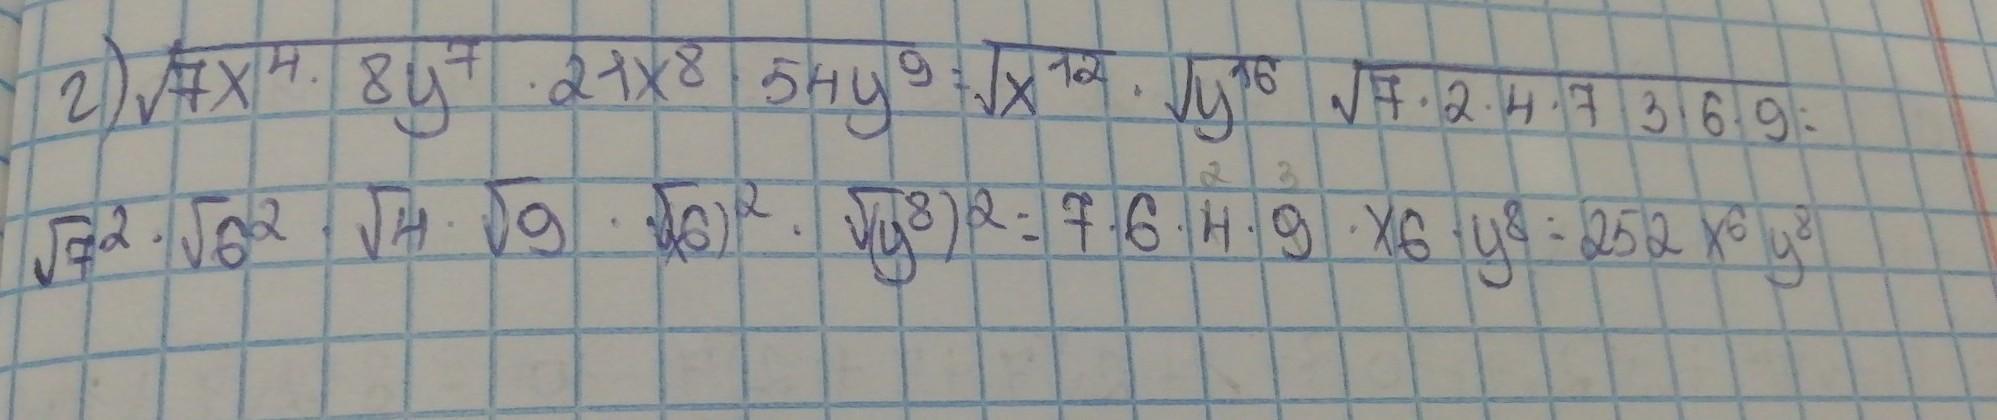 г) √7x⁴ · 8y⁷ · 21x⁸ · 54y⁹ = √x¹² · √y¹⁶ √7 · 2 · 4 · 7 3 · 6 · 9 =
√7² · √6² · √4 · √9 · √(x6)² · √(y⁸)² = 7 · 6 · 4 · 9 · x6 · y⁸ = 252 x⁶ y⁸